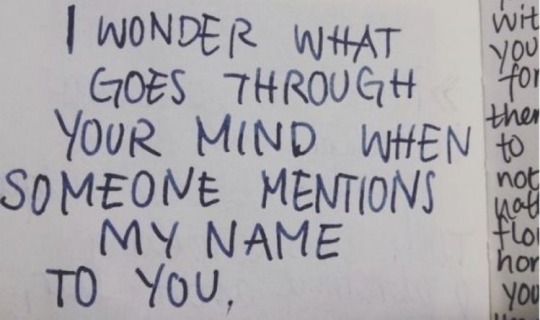 I WONDER WHAT
GOES THROUGH
YOUR MIND WHEN
SOMEONE MENTIONS
MY NAME
TO YOU,
you
for
to
not
you